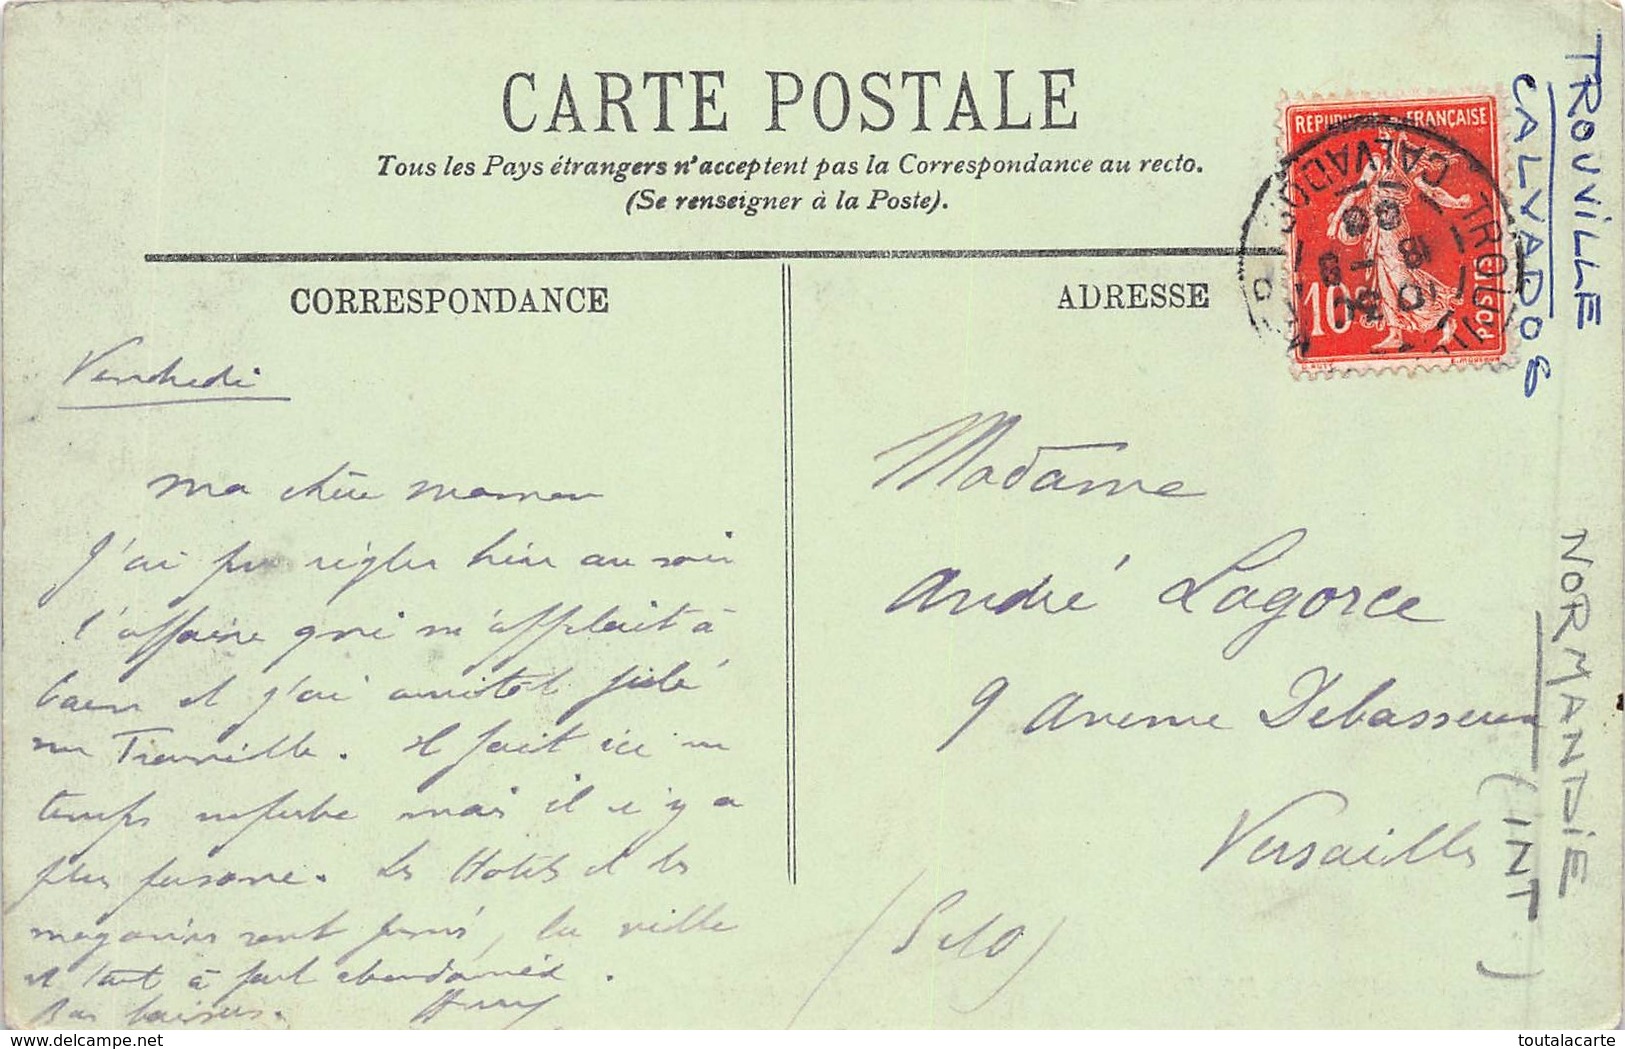 CARTE POSTALE
Tous les Pays étrangers n'acceptent pas la Correspondance au recto.
(Se renseigner à la Poste).
CORRESPONDANCE
ADRESSE
REPUBLIQUE FRANÇAISE
POSTES
10c
TROUVILLE
CALVADOS
TROUVILLE
CALVADOS
NORMANDIE
(INT)
Vendredi
Ma chère maman
J'ai pu régler hier au soir
l'affaire qui m'appelait à
Caen et j'ai aussitôt filé
sur Trouville. Il fait ici un
temps superbe mais il n'y a
plus personne. Les Hotels et les
magasins sont fermés, la ville
est tout à fait abandonnée.
Bons baisers.
Madame
André Lagorce
9 avenue Debasseux
Versailles
(S et O)
delcampe.net
toutalacarte